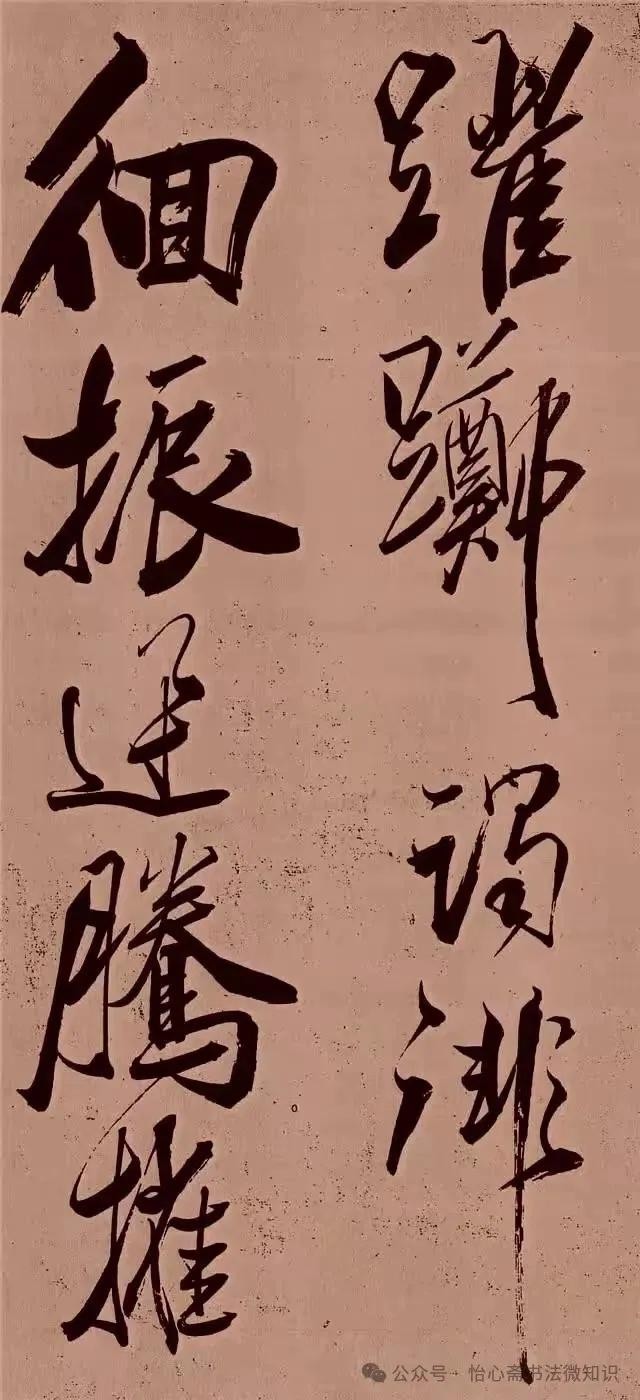 躍躑躅徘
徊振迅騰摧
公众号 · 怡心斋书法微知识